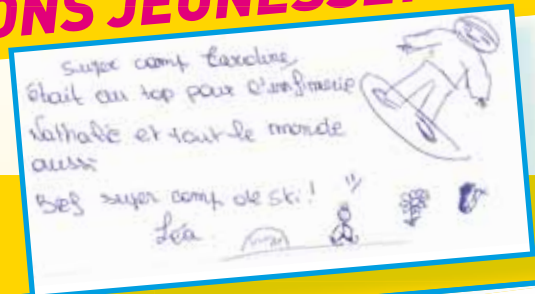 ONS JEUNESSE
super camp Caroline
était au top pour l'infirmerie
Nathalie et tout le monde
aussi
Bef super camp de ski !
Léa